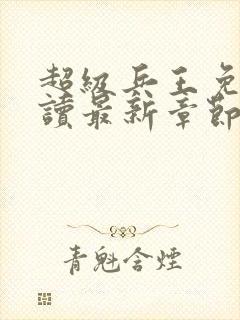 超級兵王免
讀最新章節
青魁含煙